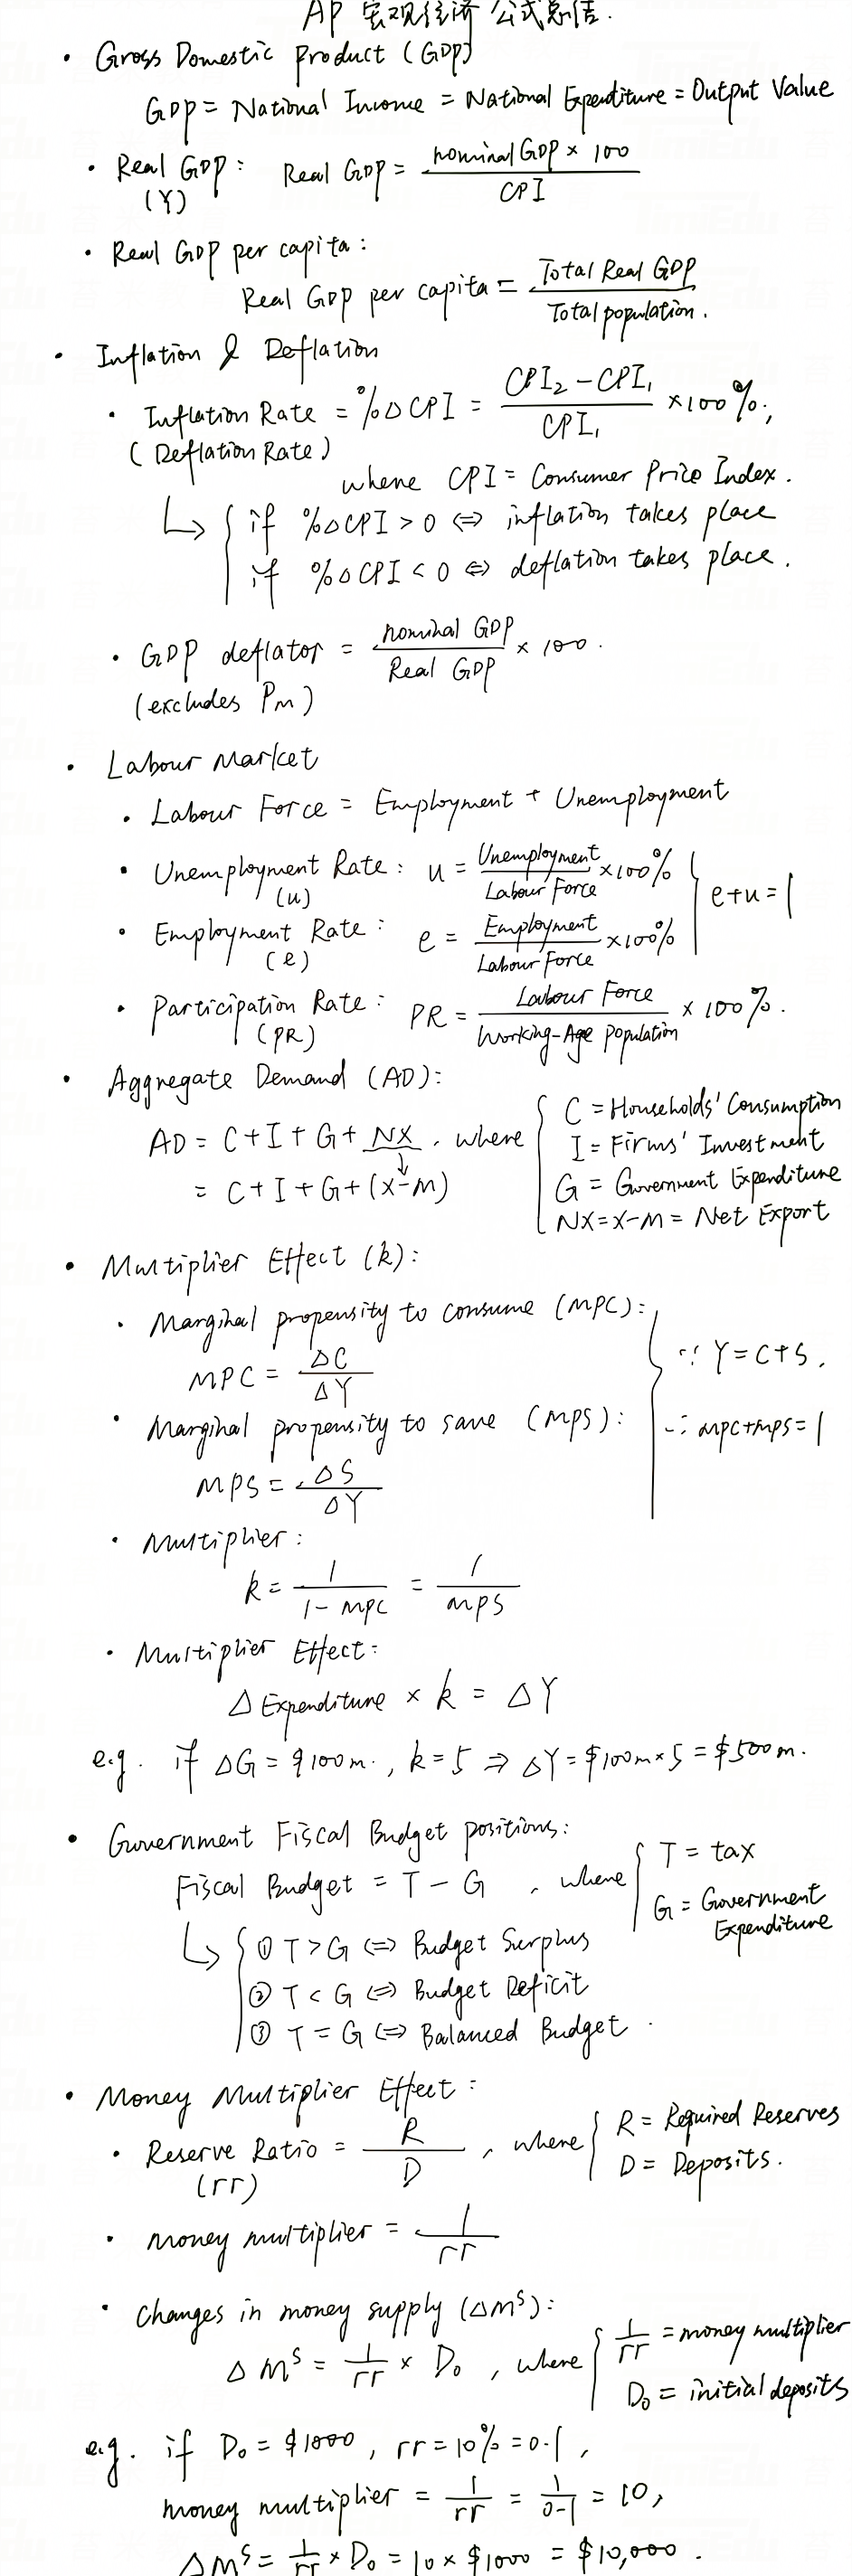 AP 宏观经济 公式总结.
• Gross Domestic Product (GDP)
GDP = National Income = National Expenditure = Output Value
• Real GDP: Real GDP = nominal GDP × 100 / CPI
(Y)
• Real GDP per capita:
Real GDP per capita = Total Real GDP / Total population.
• Inflation & Deflation
• Inflation Rate = %ΔCPI = CPI₂ - CPI₁ / CPI₁ × 100%,
(Deflation Rate)
where CPI = Consumer Price Index.
↳ { if %ΔCPI > 0 ⇔ inflation takes place
if %ΔCPI < 0 ⇔ deflation takes place.
• GDP deflator = nominal GDP / Real GDP × 100.
(excludes Pm)
• Labour Market
• Labour Force = Employment + Unemployment
• Unemployment Rate: u = Unemployment / Labour Force × 100%
(u)
e+u=1
• Employment Rate: e = Employment / Labour Force × 100%
(e)
• Participation Rate: PR = Labour Force / Working-Age Population × 100%.
(PR)
• Aggregate Demand (AD):
AD = C + I + G + NX, where { C = Households' Consumption
I = Firms' Investment
= C + I + G + (X-M)
G = Government Expenditure
NX = X-M = Net Export
• Multiplier Effect (k):
• Marginal propensity to consume (MPC):
MPC = ΔC / ΔY
∵ Y = C+S.
• Marginal propensity to save (MPS):
∴ MPC+MPS=1
MPS = ΔS / ΔY
• Multiplier:
k = 1 / 1-MPC = 1 / MPS
• Multiplier Effect:
Δ Expenditure × k = ΔY
e.g. if ΔG = $100m., k = 5 ⇒ ΔY = $100m × 5 = $500m.
• Government Fiscal Budget positions:
Fiscal Budget = T - G, where { T = tax
G = Government Expenditure
↳ { ① T > G ⇔ Budget Surplus
② T < G ⇔ Budget Deficit
③ T = G ⇔ Balanced Budget.
• Money Multiplier Effect:
• Reserve Ratio = R / D, where { R = Required Reserves
(rr)
D = Deposits.
• money multiplier = 1 / rr
• Changes in money supply (ΔMˢ):
Δ Mˢ = 1/rr × D₀, where { 1/rr = money multiplier
D₀ = initial deposits
e.g. if D₀ = $1000, rr = 10% = 0.1,
money multiplier = 1/rr = 1/0.1 = 10,
ΔMˢ = 1/rr × D₀ = 10 × $1000 = $10,000.